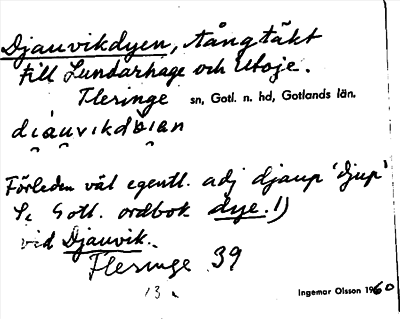 Djauvikdyen, tångtäkt
till Lundarhage och Utoje.
Fleringe sn, Gotl. n. hd, Gotlands län.
Förleden väl egentl. adj djaup 'djup'
Se Gotl. ordbok dye. 1)
vid Djauvik.
Fleringe 39
13
Ingemar Olsson 1960